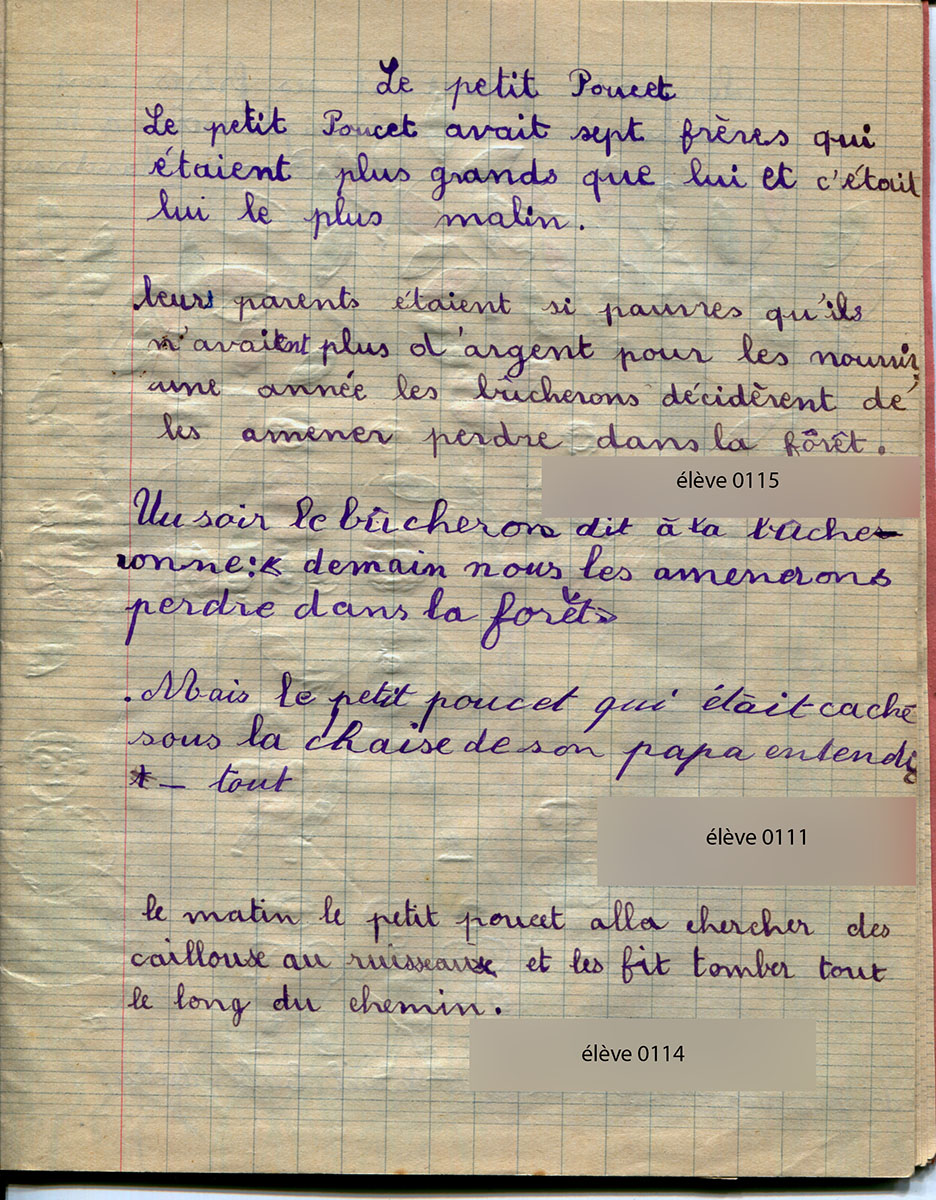 Le petit Poucet
Le petit Poucet avait sept frères qui
étaient plus grands que lui et c'était
lui le plus malin.
leurs parents étaient si pauvres qu'ils
n'avaient plus d'argent pour les nourrir,
une année les bûcherons décidèrent de
les amener perdre dans la fôrêt.
élève 0115
Un soir le bûcheron dit à la bûche-
ronne:« demain nous les amenerons
perdre dans la forêt»
.Mais le petit poucet qui était caché
sous la chaise de son papa entendi
t_ tout
élève 0111
le matin le petit poucet alla chercher des
cailloux au ruisseau et les fit tomber tout
le long du chemin.
élève 0114